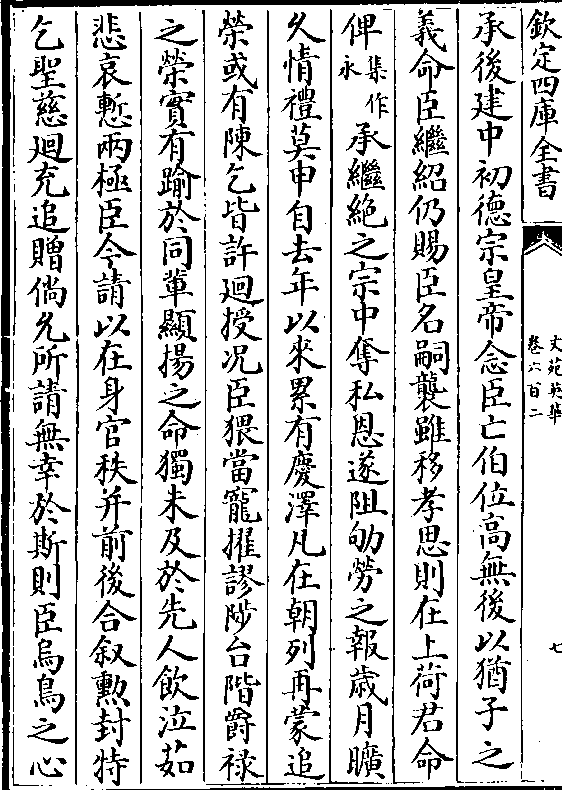 欽定四庫全書
文苑英華
卷六百二
七
承後建中初德宗皇帝念臣亡伯位高無後以猶子之
義命臣繼紹仍賜臣名嗣襲雖移孝思則在上荷君命
俾集作永承繼絶之宗中奪私恩遂阻劬勞之報歲月曠
久情禮莫申自去年以來累有慶澤凡在朝列再蒙追
榮或有陳乞皆許迴授况臣猥當寵擢謬陟台階爵禄
之榮實有踰於同軰顯揚之命獨未及於先人飲泣茹
悲哀慙兩極臣今請以在身官秩并前後合叙勲封特
乞聖慈廻充追贈倘允所請無幸於斯則臣烏鳥之心